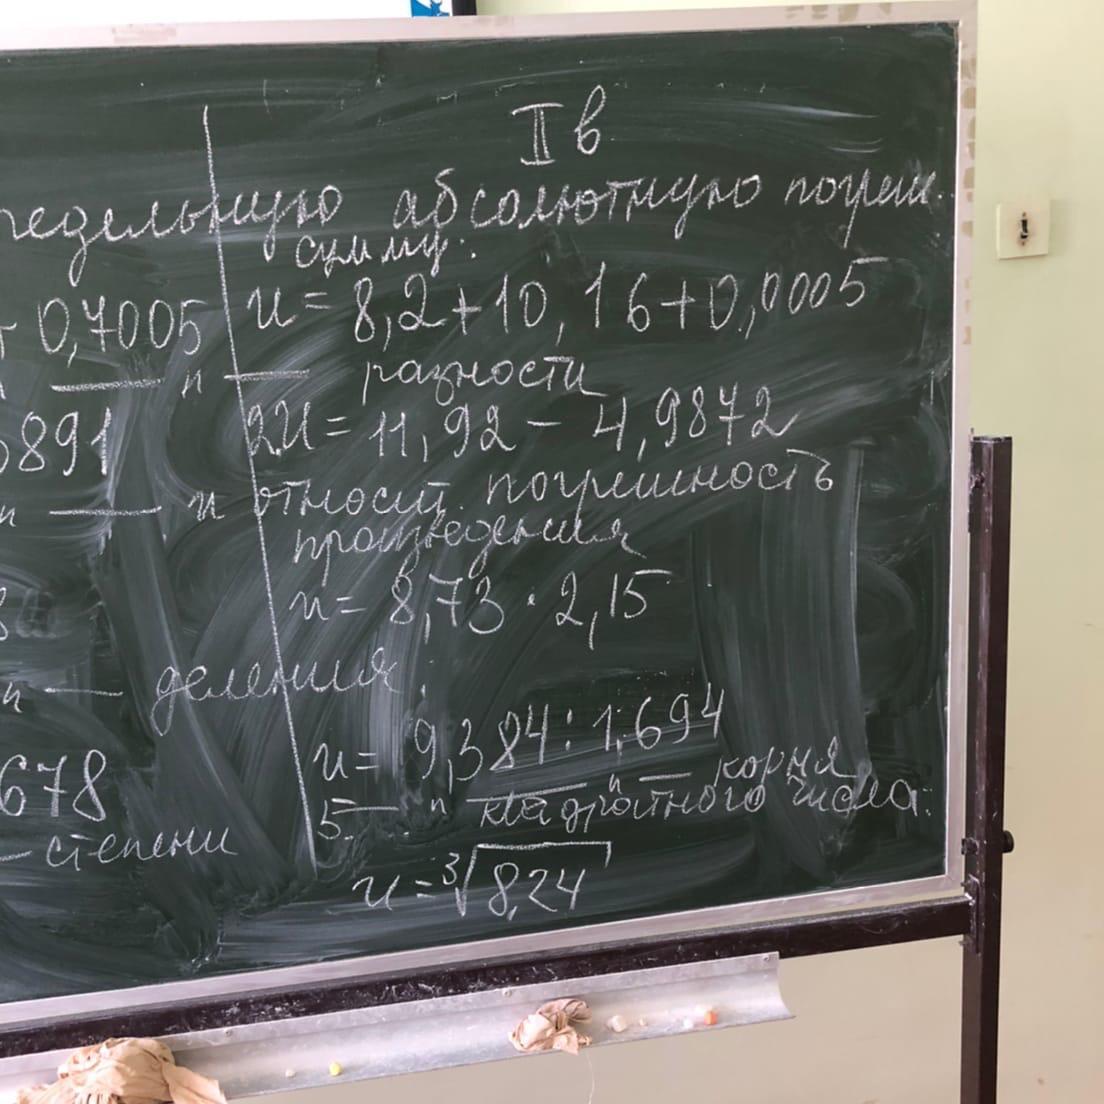 II в
редельную абсолютную погреш.
сумму:
+ 0,7005 u = 8,2 + 10,16 + 0,0005
— " — разности
5891 2. u = 11,92 - 4,9872
" — и относит погрешность
произведения
u = 8,73 · 2,15
" — деления.
u = 9,384 : 1,694
678 5. — " — " — корня
квадратного числа:
— степени
u = ³√8,24